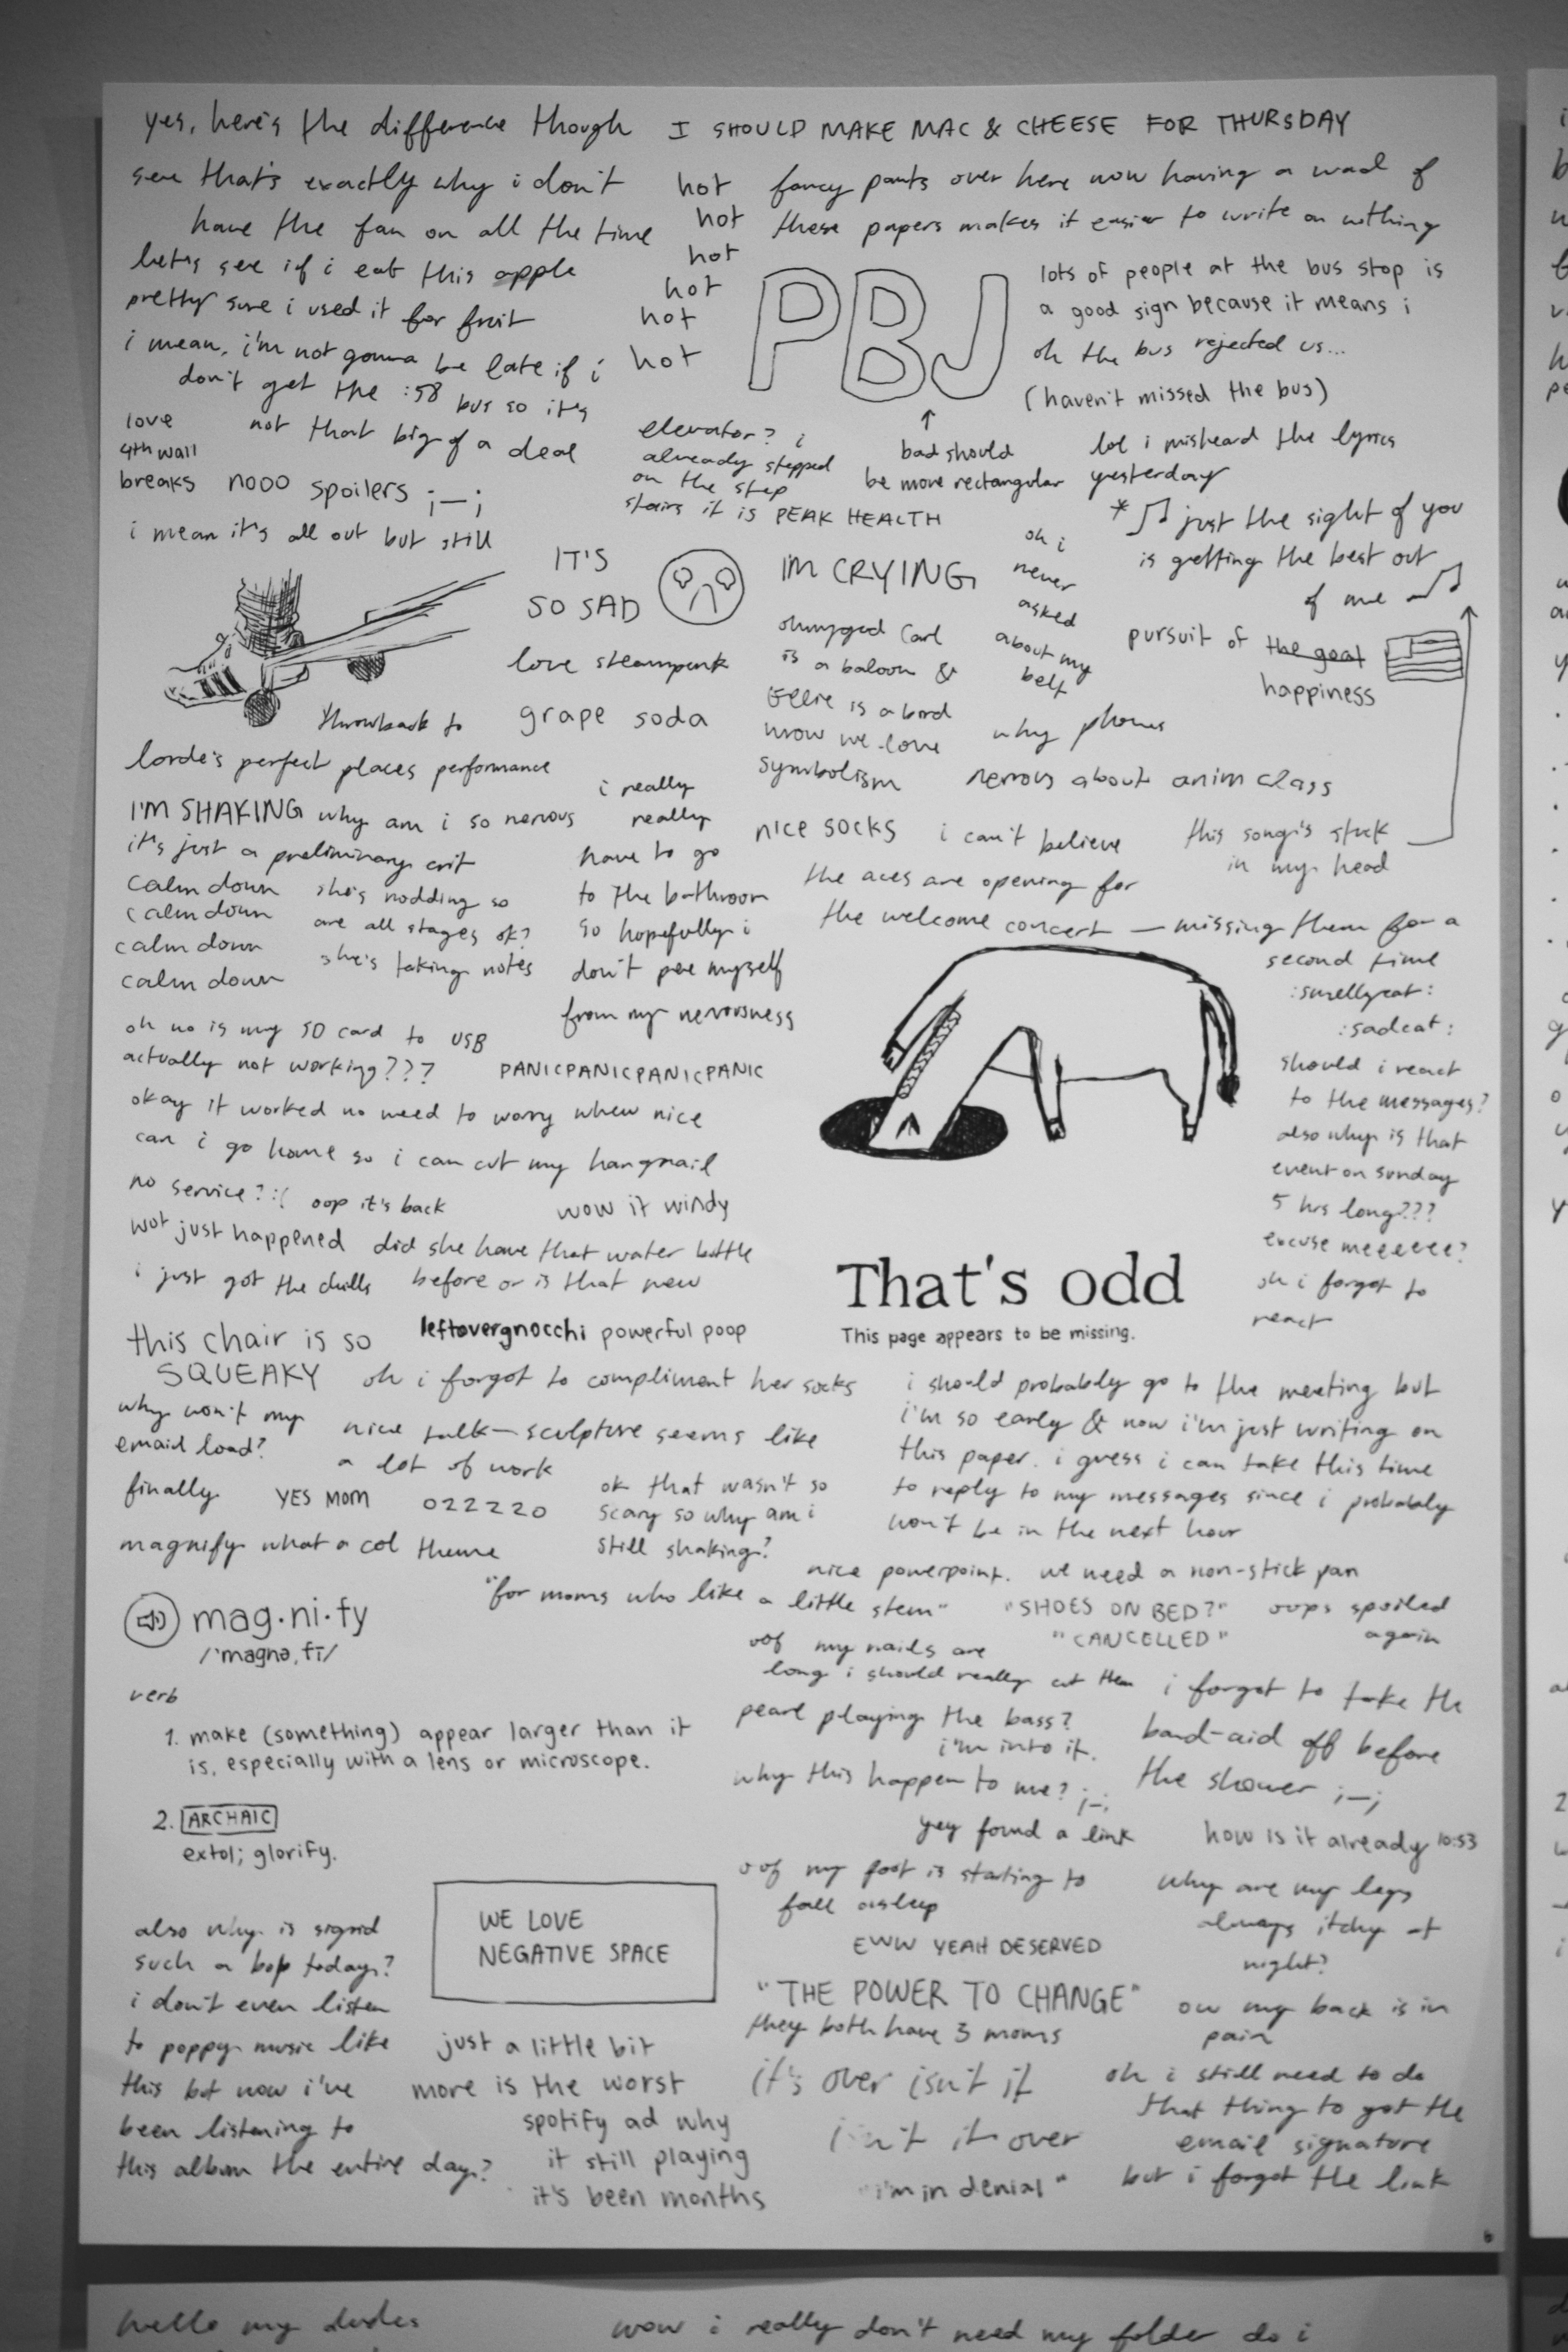 yes, here's the difference though
see that's exactly why i don't
have the fan on all the time
let's see if i eat this apple
pretty sure i used it for fruit
i mean, i'm not gonna be late if i
don't get the :58 bus so it's
not that big of a deal
love
4th wall
breaks
nooo spoilers ;_;
i mean it's all out but still
I SHOULD MAKE MAC & CHEESE FOR THURSDAY
hot
hot
hot
hot
hot
hot
fancy pants over here now having a wad of
these papers makes it easier to write on nothing
PBJ
↑
bad should
be more rectangular
lots of people at the bus stop is
a good sign because it means i
oh the bus rejected us...
(haven't missed the bus)
elevator? i
already stepped
on the step
stairs it is PEAK HEALTH
lol i misheard the lyrics
yesterday
* ♫ just the sight of you
is getting the best out
of me ♫
IT'S
SO SAD
I'M CRYING
oh i
never
asked
about my
belt
love steampunk
ohmygod Carl
is a baloon &
Ellie is a bird
wow we love
symbolism
pursuit of the goat
happiness
throwback to
grape soda
why phones
lorde's perfect places performance
nervous about anim class
I'M SHAKING why am i so nervous
it's just a preliminary crit
calm down
calm down
calm down
calm down
she's nodding so
are all stages ok?
she's taking notes
i really
really
have to go
to the bathroom
so hopefully i
don't pee myself
from my nervousness
nice socks
i can't believe
the aces are opening for
the welcome concert — missing them for a
second time
:smellycat:
:sadcat:
this song's stuck
in my head
should i react
to the messages?
also why is that
event on sunday
5 hrs long???
excuse meeeeee?
oh i forgot to
react
oh no is my SD card to USB
actually not working???
PANICPANICPANICPANIC
okay it worked no need to worry whew nice
can i go home so i can cut my hangnail
no service? :( oop it's back
wow it windy
wot just happened
did she have that water bottle
before or is that new
i just got the chills
That's odd
This page appears to be missing.
this chair is so
SQUEAKY
leftovergnocchi powerful poop
oh i forgot to compliment her socks
why won't my
email load?
finally
nice talk — sculpture seems like
a lot of work
YES MOM
022220
ok that wasn't so
scary so why am i
still shaking?
i should probably go to the meeting but
i'm so early & now i'm just writing on
this paper. i guess i can take this time
to reply to my messages since i probably
won't be in the next hour
magnify what a col theme
nice powerpoint.
we need a non-stick pan
"for moms who like a little stem"
"SHOES ON BED?"
"CANCELLED"
oops spoiled
again
mag·ni·fy
/ˈmagnəˌfī/
verb
1. make (something) appear larger than it
is, especially with a lens or microscope.
2. ARCHAIC
extol; glorify.
oof my nails are
long i should really cut them
pearl playing the bass?
i'm into it.
why this happen to me? ;_;
yey found a link
i forgot to take the
band-aid off before
the shower ;_;
how is it already 10:53
oof my foot is starting to
fall asleep
EWW YEAH DESERVED
why are my legs
always itchy at
night?
also why is sigrid
such a bop today?
i don't even listen
to poppy music like
this but now i've
been listening to
this album the entire day?
WE LOVE
NEGATIVE SPACE
just a little bit
more is the worst
spotify ad why
it still playing
it's been months
"THE POWER TO CHANGE"
they both have 3 moms
it's over isn't it
isn't it over
"i'm in denial"
ow my back is in
pain
oh i still need to do
that thing to get the
email signature
but i forgot the link
6
hello my dudes
wow i really don't need my folder do i